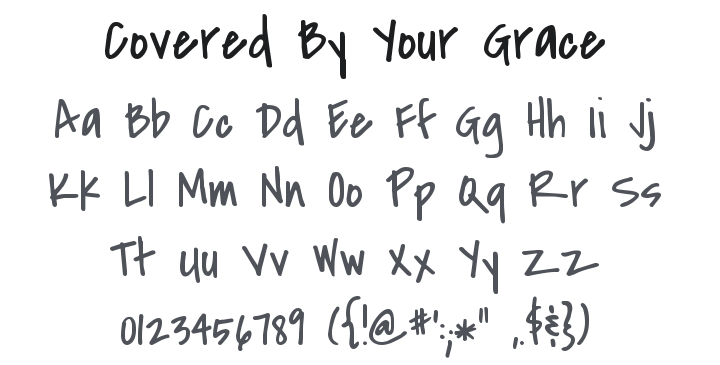 Covered By Your Grace
Aa Bb Cc Dd Ee Ff Gg Hh Ii Jj
Kk Ll Mm Nn Oo Pp Qq Rr Ss
Tt Uu Vv Ww Xx Yy Zz
0123456789 ({!@#':;*" ,.$&})